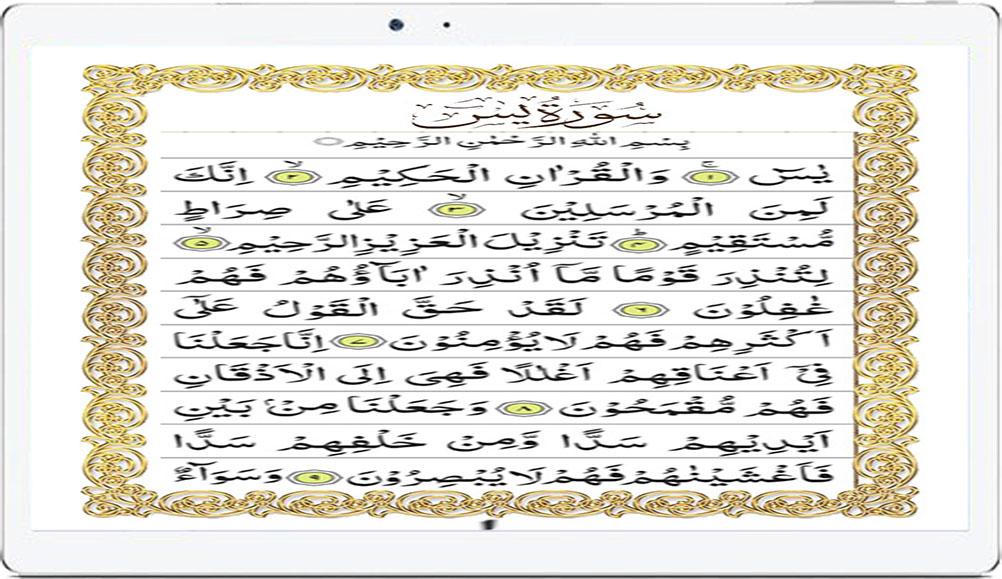 سُوْرَةُ يٰسٓ
بِسْمِ اللهِ الرَّحْمٰنِ الرَّحِيْمِ
يٰسٓ ۚ ﴿۱﴾ وَالْقُرْاٰنِ الْحَكِيْمِ ۙ ﴿۲﴾ اِنَّكَ
لَمِنَ الْمُرْسَلِيْنَ ۙ ﴿۳﴾ عَلٰى صِرَاطٍ
مُّسْتَقِيْمٍ ؕ ﴿۴﴾ تَنْزِيْلَ الْعَزِيْزِ الرَّحِيْمِ ۙ ﴿۵﴾
لِتُنْذِرَ قَوْمًا مَّاۤ اُنْذِرَ اٰبَآؤُهُمْ فَهُمْ
غٰفِلُوْنَ ﴿۶﴾ لَقَدْ حَقَّ الْقَوْلُ عَلٰٓى
اَكْثَرِهِمْ فَهُمْ لَا يُؤْمِنُوْنَ ﴿۷﴾ اِنَّا جَعَلْنَا
فِيْۤ اَعْنَاقِهِمْ اَغْلٰلًا فَهِىَ اِلَى الْاَذْقَانِ
فَهُمْ مُّقْمَحُوْنَ ﴿۸﴾ وَجَعَلْنَا مِنْۢ بَيْنِ
اَيْدِيْهِمْ سَدًّا وَّمِنْ خَلْفِهِمْ سَدًّا
فَاَغْشَيْنٰهُمْ فَهُمْ لَا يُبْصِرُوْنَ ﴿۹﴾ وَسَوَآءٌ